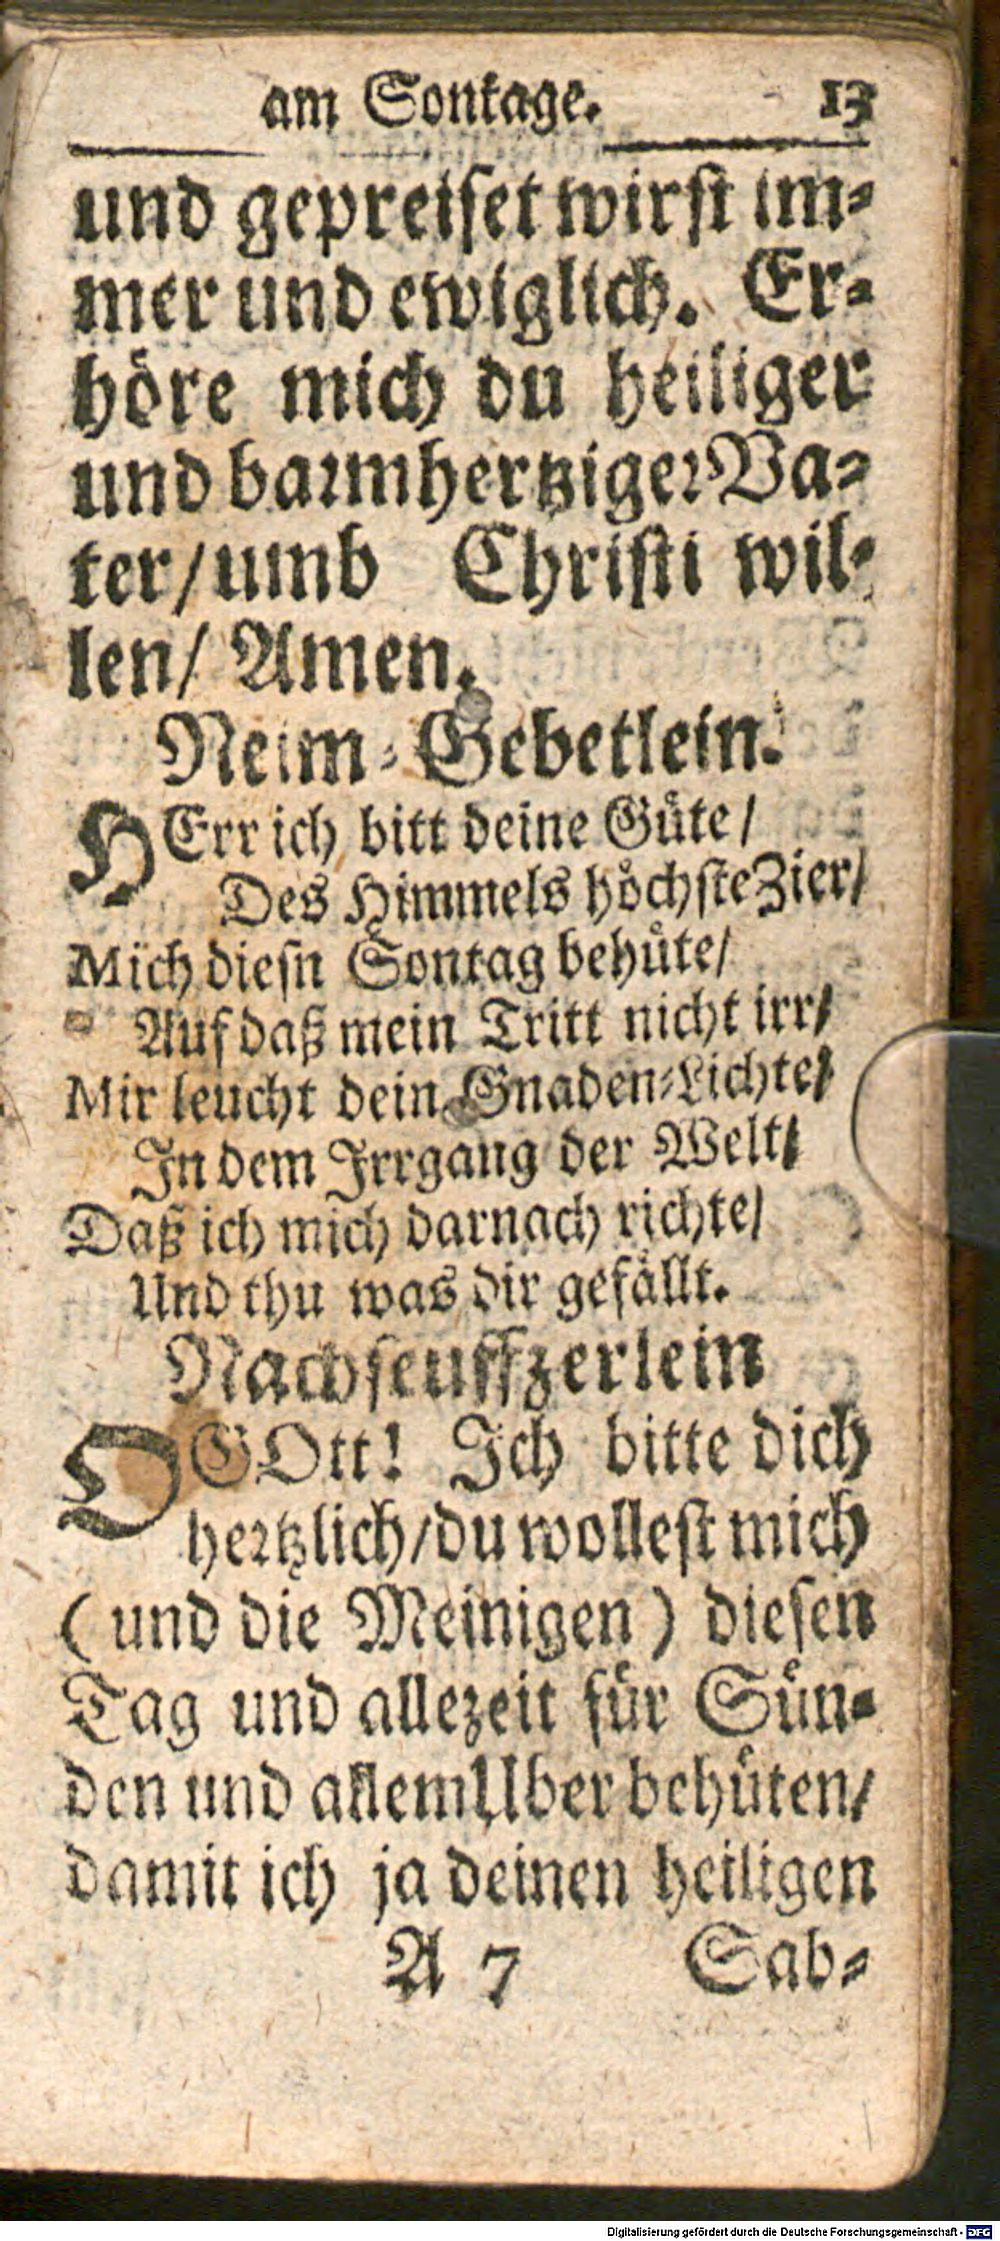 am Sontage. 13
und gepreiset wirst im-
mer und ewiglich. Er-
höre mich du heiliger
und barmhertziger Va-
ter/ umb Christi wil-
len/ Amen.
Reim-Gebetlein.
HErr ich bitt deine Güte/
Des Himmels höchste Zier/
Mich diesn Sontag behüte/
Auf daß mein Tritt nicht irr/
Mir leucht dein Gnaden-Lichte/
In dem Irrgang der Welt/
Daß ich mich darnach richte/
Und thu was dir gefällt.
Nachseuffzerlein
O GOtt! Ich bitte dich
hertzlich/ du wollest mich
(und die Meinigen) diesen
Tag und allezeit für Sün-
den und allem Uber behüten/
damit ich ja deinen heiligen
A 7 Sab-
Digitalisierung gefördert durch die Deutsche Forschungsgemeinschaft - DFG